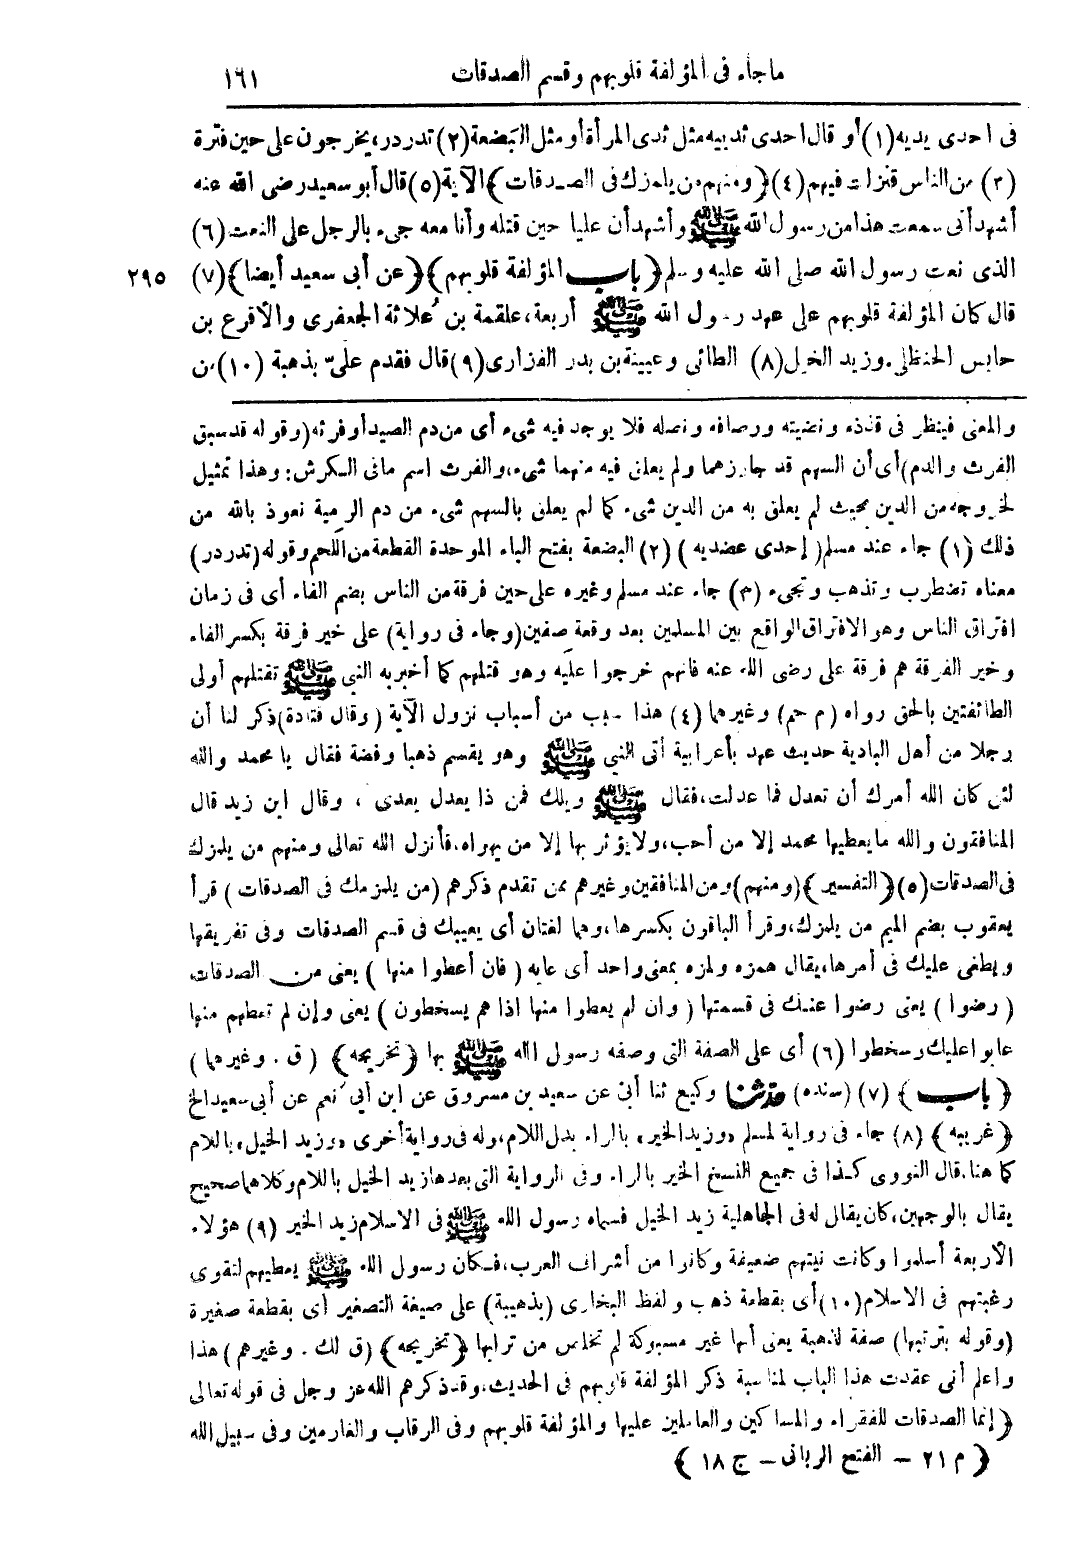 ماجاء فى المؤلفة قلوبهم وقسم الصدقات ١٦١
فى احدى يديه (١) أو قال احدى ثدييه مثل ثدى المرأة أو مثل البَضعة (٢) تدردر، يخرجون على حين فترة
(٣) من الناس فنزلت فيهم (٤) ﴿ومنهم من يلمزك فى الصدقات﴾ الآية (٥) قال أبو سعيد رضى الله عنه
أشهد أنى سمعت هذا من رسول الله ﷺ وأشهد أن عليا حين قتله وأنا معه جىء بالرجل على النعت (٦)
الذى نعت رسول الله صلى الله عليه وسلم ﴿باب المؤلفة قلوبهم﴾ ﴿عن أبى سعيد أيضا﴾ (٧) ٢٩٥
قال كان المؤلفة قلوبهم على عهد رسول الله ﷺ أربعة، علقمة بن عُلاثة الجعفرى والأقرع بن
حابس الحنظلى. وزيد الخيل (٨) الطائى وعيينة بن بدر الفزارى (٩) قال فقدم علىّ بذهبة (١٠) من
والمعنى فينظر فى قذذه ونضيته ورصافه ونصله فلا يوجد فيه شىء أى من دم الصيد أو فرثه (وقوله قد سبق
الفرث والدم) أى أن السهم قد جاوزهما ولم يعلق فيه منهما شىء، والفرث اسم مافى الكرش: وهذا تمثيل
لخروجه من الدين بحيث لم يعلق به من الدين شىء كما لم يعلق بالسهم شىء من دم الرمية نعوذ بالله من
ذلك (١) جاء عند مسلم (إحدى عضديه) (٢) البضعة بفتح الباء الموحدة القطعة من اللحم وقوله (تدردر)
معناه تضطرب وتذهب وتجىء (٣) جاء عند مسلم وغيره على حين فرقة من الناس بضم الفاء أى فى زمان
افتراق الناس وهو الافتراق الواقع بين المسلمين بعد وقعة صفين (وجاء فى رواية) على خير فرقة بكسر الفاء
وخير الفرقة هم فرقة على رضى الله عنه فانهم خرجوا عليه وهو قتلهم كما أخبر به النبى ﷺ تقتلهم أولى
الطائفتين بالحق رواه (م حم) وغيرهما (٤) هذا سبب من أسباب نزول الآية (وقال قتادة) ذكر لنا أن
رجلا من أهل البادية حديث عهد بأعرابية أتى النبى ﷺ وهو يقسم ذهبا وفضة فقال يا محمد والله
لئن كان الله أمرك أن تعدل فما عدلت، فقال ﷺ ويلك فمن ذا يعدل بعدى، وقال ابن زيد قال
المنافقون والله مايعطيها محمد إلا من أحب، ولا يؤثر بها إلا من يهواه. فأنزل الله تعالى ومنهم من يلمزك
فى الصدقات (٥) ﴿التفسير﴾ (ومنهم) ومن المنافقين وغيرهم ممن تقدم ذكرهم (من يلمزمك فى الصدقات) قرأ
يعقوب بضم الميم من يلمزك، وقرأ الباقون بكسرها، وهما لغتان أى يعيبك فى قسم الصدقات وفى تفريقها
ويطغى عليك فى أمرها، يقال همزه ولمزه بمعنى واحد أى عابه (فان أعطوا منها) يعنى من الصدقات
(رضوا) يعنى رضوا عنك فى قسمتها (وان لم يعطوا منها اذا هم يسخطون) يعنى وإن لم تعطهم منها
عابوا عليك وسخطوا (٦) أى على الصفة التى وصفه رسول الله ﷺ بها ﴿تخريجه﴾ (ق. وغيرهما)
﴿باب﴾ (٧) (سنده) حدثنا وكيع ثنا أبى عن سعيد بن مسروق عن ابن أبى نعم عن أبى سعيد الخ
﴿غريبه﴾ (٨) جاء فى رواية لمسلم «وزيد الخير» بالراء بدل اللام، وله فى رواية أخرى «وزيد الخيل» باللام
كما هنا. قال النووى كذا فى جميع النسخ الخير بالراء. وفى الرواية التى بعدها زيد الخيل باللام وكلاهما صحيح
يقال بالوجهين، كان يقال له فى الجاهلية زيد الخيل فسماه رسول الله ﷺ فى الاسلام زيد الخير (٩) هؤلاء
الأربعة أسلموا وكانت نيتهم ضعيفة وكانوا من أشراف العرب، فكان رسول الله ﷺ يعطيهم لتقوى
رغبتهم فى الاسلام (١٠) أى بقطعة ذهب ولفظ البخارى (بذهيبة) على صيغة التصغير أى بقطعة صغيرة
(وقوله بتربتها) صفة لذهبة يعنى أنها غير مسبوكة لم تخلص من ترابها ﴿تخريجه﴾ (ق لك. وغيرهم) هذا
واعلم أنى عقدت هذا الباب لمناسبة ذكر المؤلفة قلوبهم فى الحديث، وقد ذكرهم الله عز وجل فى قوله تعالى
﴿إنما الصدقات للفقراء والمساكين والعاملين عليها والمؤلفة قلوبهم وفى الرقاب والغارمين وفى سبيل الله
﴿م ٢١ – الفتح الربانى – ج ١٨﴾